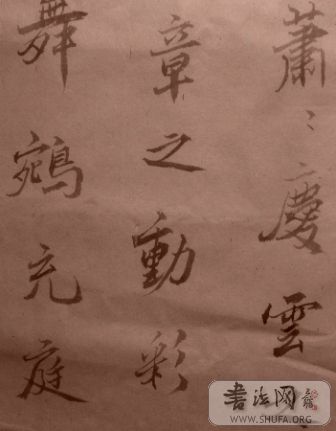 蕭〻慶雲
章之動彩
舞鵷充庭
書法网
WWW.SHUFA.ORG